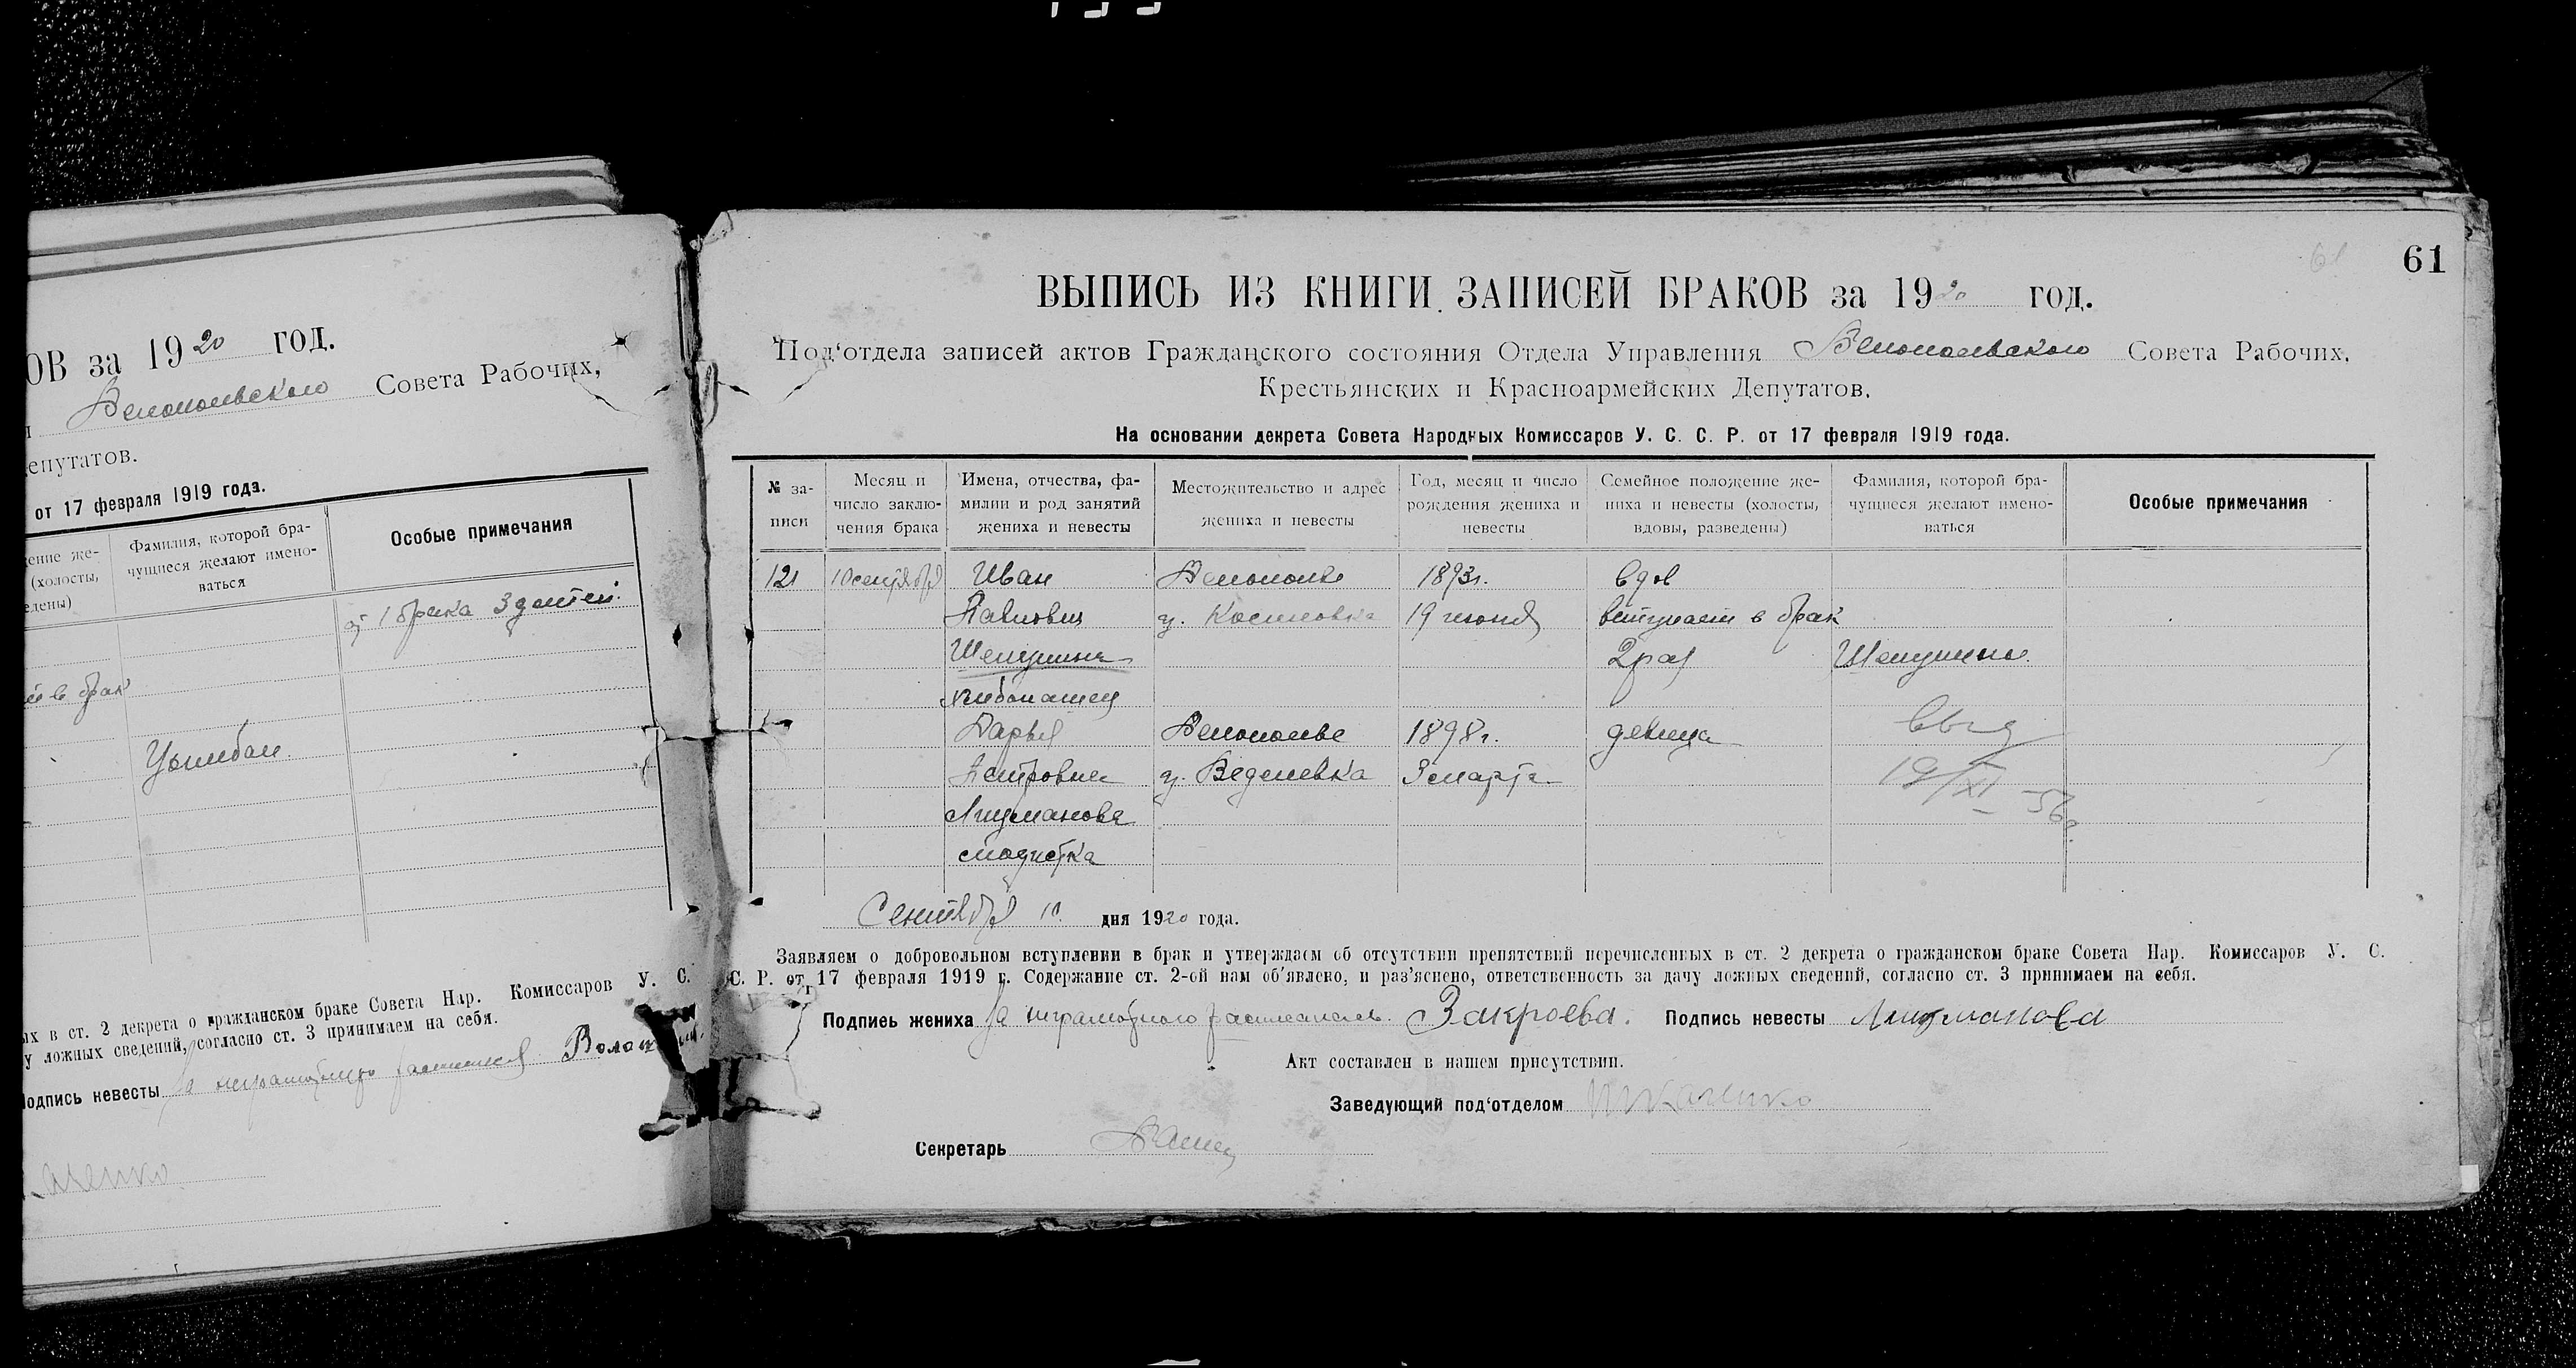 ОВ за 1920 год.
Белопольского Совета Рабочих,
епутатов.
от 17 февраля 1919 года.
ение же- (холосты, едены)
Фамилия, которой бра- чущиеся желают имено- ваться
Особые примечания
от 1 брака 3 детей.
в брак
Цымбал
ых в ст. 2 декрета о гражданском браке Совета Нар. Комиссаров У. С.
у ложных сведений, согласно ст. 3 принимаем на себя.
Подпись невесты За неграмотную
61
61
ВЫПИСЬ ИЗ КНИГИ ЗАПИСЕЙ БРАКОВ за 1920 год.
Под‘отдела записей актов Гражданского состояния Отдела Управления Белопольского Совета Рабочих,
Крестьянских и Красноармейских Депутатов.
На основании декрета Совета Народных Комиссаров У. С. С. Р. от 17 февраля 1919 года.
№ за- писи
Месяц и число заклю- чения брака
Имена, отчества, фа- милии и род занятий жениха и невесты
Местожительство и адрес жениха и невесты
Год, месяц и число рождения жениха и невесты
Семейное положение же- ниха и невесты (холосты, вдовы, разведены)
Фамилия, которой бра- чущиеся желают имено- ваться
Особые примечания
121 10 сентября Иван Белополье 1893г. вдов
Павлович 19 июня вступает в брак
2 раз
хлебопашец
Дарья Белополье 1898г. девица
Петровна у. Веденевка 3 марта 19/XI-56г.
Лицманова
модистка
Сентября 10 дня 1920 года.
Заявляем о добровольном вступлении в брак и утверждаем об отсутствии препятствий перечисленных в ст. 2 декрета о гражданском браке Совета Нар. Комиссаров У. С.
С. Р. от 17 февраля 1919 г. Содержание ст. 2-ой нам об’явлено, и раз’яснено, ответственность за дачу ложных сведений, согласно ст. 3 принимаем на себя.
Подпись жениха За неграмотного Закроева. Подпись невесты Лицманова
Акт составлен в нашем присутствии.
Заведующий под‘отделом
Секретарь